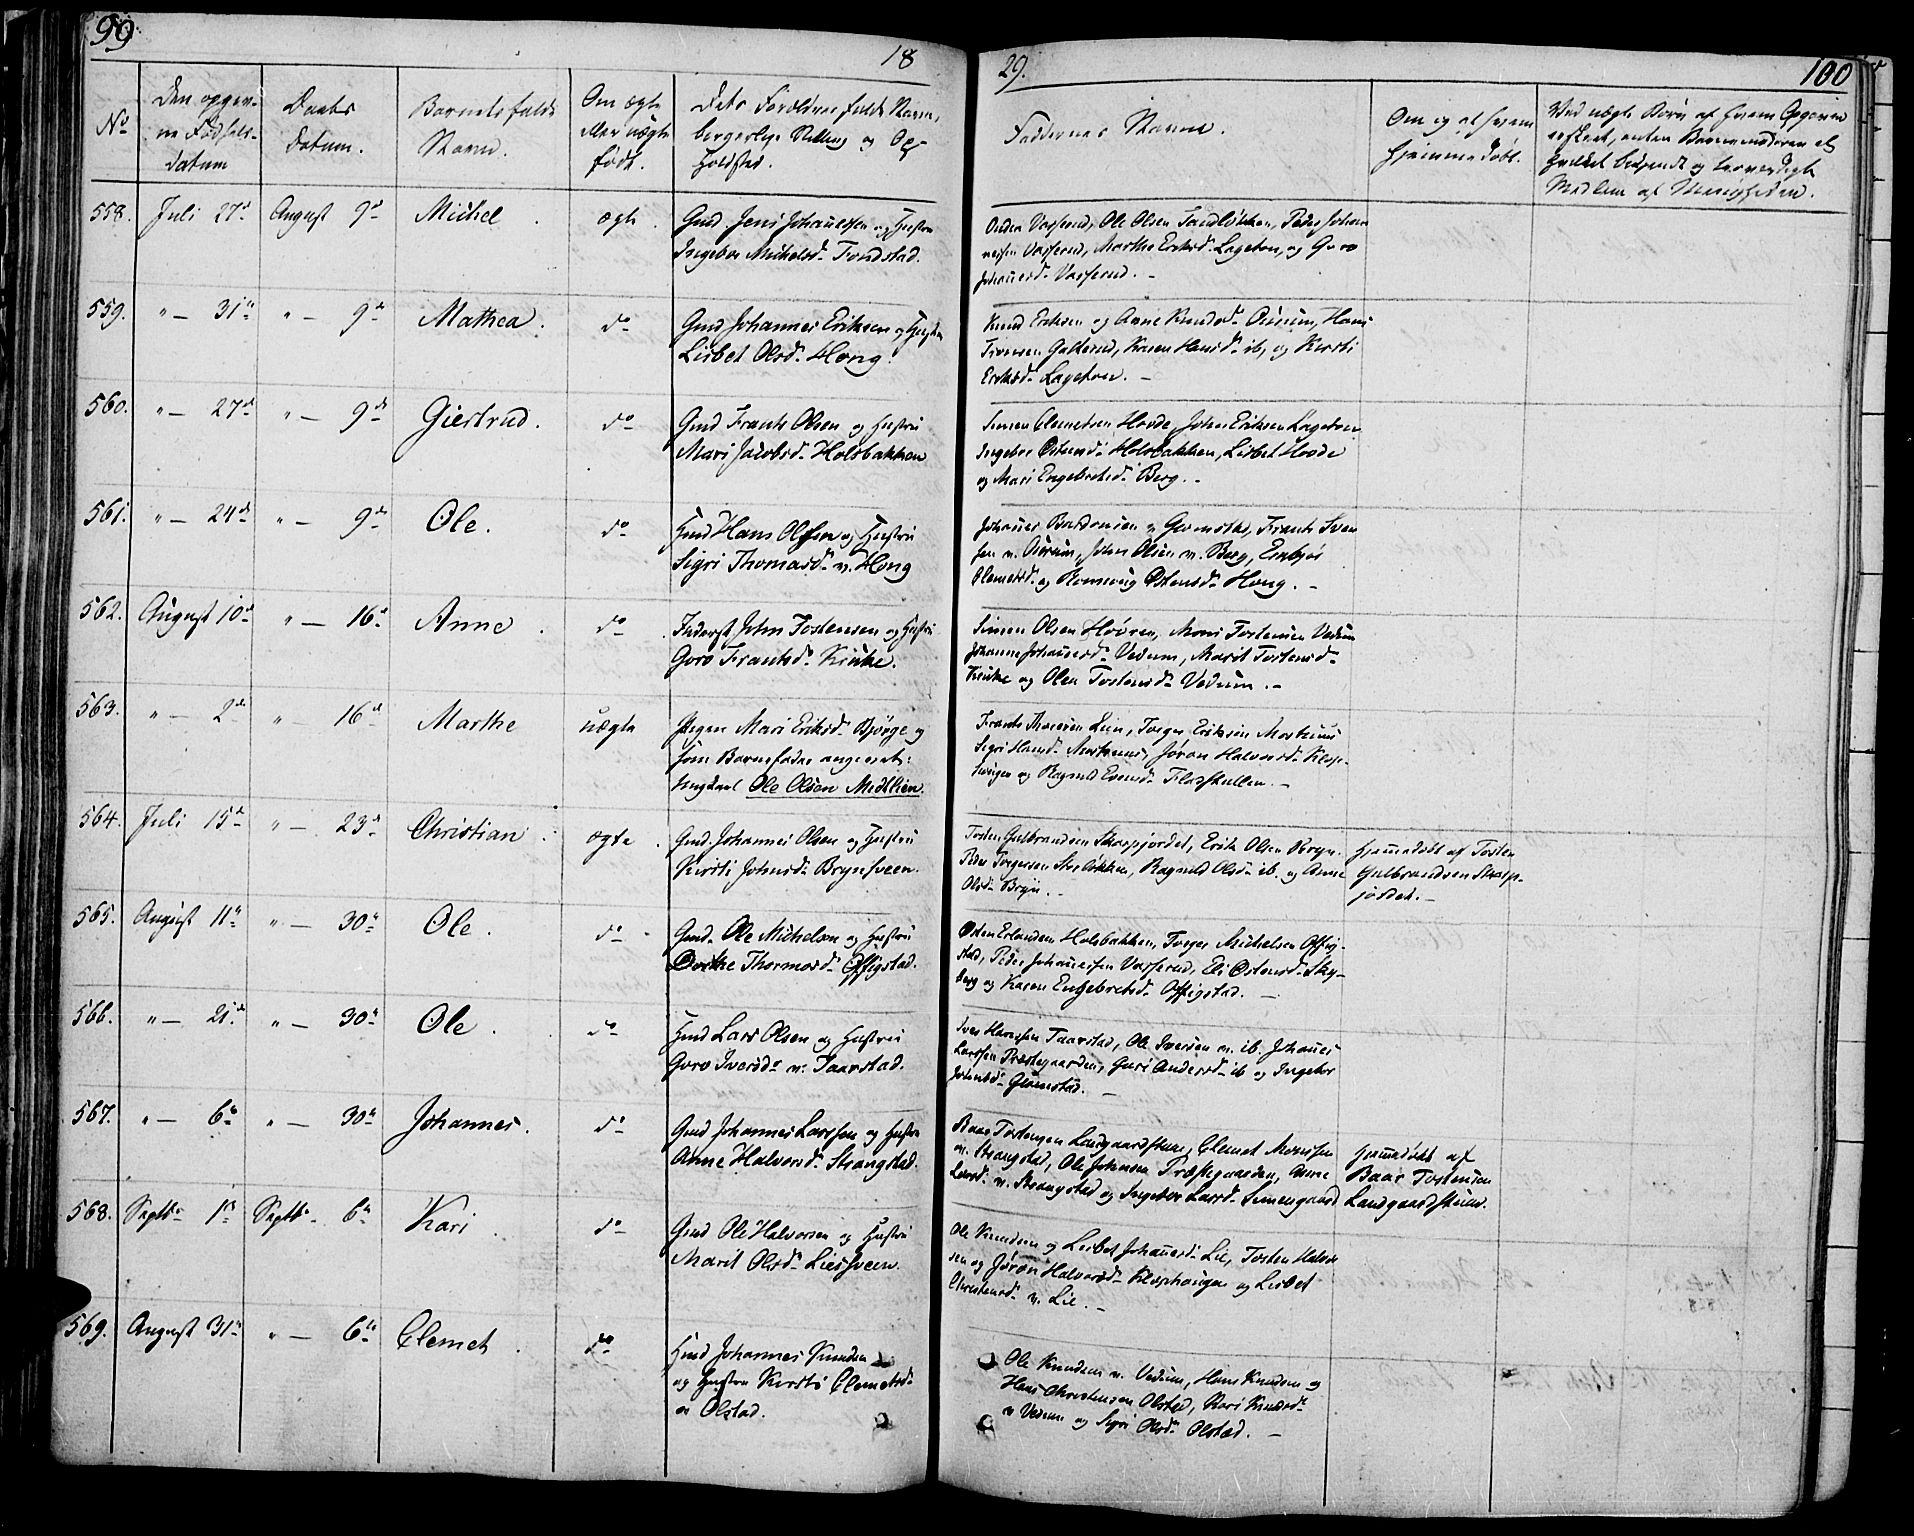 99
18
29.
100
No
Den opgiv-
ne Fødsels-
datum
Daabs
Datum.
Barnets fulde
Navn.
Om ægte
eller uægte
født.
Dets Forældres fulde Navn,
borgerlige Stilling og Op-
holdsted.
Faddernes Navne.
Om og af hvem
hjemmedøbt.
Ved uægte Børn af hvem Opgaven
er skeet, enten Barnemoderen el
hvilket bekjendt og troværdigt
Medlem af Menigheden.
558. Juli 27d August 9d Michel. ægte. Gmd. Jens Johannessen og Hustru
Ingebor Michelsd. Fondstad.
Ole Olsen Sandløkken, Peder Johan
nessen Vasserud, Marthe Eriksd. Lageton, og Goro
Johannesd. Vasserud. –
559. " – 31te " – 9de Mathea. do Gmd Johannes Eriksen og Hustru
Lisbet Olsd. Hong.
Knud Eriksen og Anne Knudsd. Hans
Karen Hansd. ib, og Kirsti
Eriksd. Lageton. –
560. " – 27de " – 9de Giertrud. do Gmd Frants Olsen og Hustru
Mari Jacobsd. Holsbakken
Simen Clemetsen Hovde, John Eriksen Lageton
Ingebor Østensd. Holsbakken, Lisbet Hovde
og Mari Engebretsd. Berg. –
561. " – 24de " – 9de Ole. do Hmd Hans Olsen og Hustru
Sigri Thomasd. n. Hong
Johannes Frants Iver
sen n. John Olsen n. Berg,
Clemetsd. og Ronnoug Østensd. Hong. –
562. August 10de " – 16de Anne. do Inderst John Tostensen og Hustru
Goro Frantsd. Kruke.
Simen Olsen Høvren, Mons Tostensen Vedum
Johanne Johannesd. Vedum, Marit Tostensd.
Kruke og Olea Tostensd. Vedum. –
563. " – 2de " – 16de Marthe uægte Pigen Mari Eriksd. Bjørge og
som Barnefader angivet:
Ungkarl Ole Olsen Midtlien.
Lien, Torger Eriksen
Sigri Hansd. Jøran Halvorsd. Klop-
haugen og Ragnild Evensd. –
564. Juli 15de " – 23de Christian. ægte. Gmd. Johannes Olsen og Hustru
Kirsti Johnsd. Brynsveen.
Tosten Gulbrandsen Skarpjordet, Erik Olsen Bryn.
Peder Torgersen Storløkken, Ragnild Olsd. ib. og Anne
Olsd. Bryn. –
Hjemmedøbt af Tosten
Gulbrandsen Skarp-
jordet. –
565. August 11te " – 30te Ole. do Gmd. Ole Michelsen og Hustru
Dorthe Thormosd. Offigstad.
Østen Erlandsen Holsbakken, Torger Michelsen Offig-
stad, Peder Johannessen Vasserud, Eli Østensd. Sky-
berg og Karen Engebretsd. Offigstad. –
566. " – 21de " – 30te Ole. do Hmd Lars Olsen og Hustru
Goro Iversd. n. Taarstad.
Iver Hansen Taarstad, Ole Iversen n. ib. Johannes
Larssen Præstegaarden, Guri Andersd. ib og Ingebor
Johnsd. Glømstad. –
567. " – 6te " – 30te Johannes. do Gmd Johannes Larssen og Hustru
Anne Halvorsd. Strangstad.
Baar Tostensen Landgaardstuen, Clemet Monssen
n. Strangstad, Ole Johansen Præstegaarden, Anne
Larsd. n. Strangstad og Ingebor Larsd. Simengaard
Hjemmedøbt af
Baar Tostensen
Landgaardstuen.
568. Septbr. 1te Septbr. 6te Kari. do Gmd Ole Halvorsen og Hustru
Marit Olsd. Liesveen.
Ole Knudsen og Lisbet Johannesd. Lie, Tosten Halvor
sen og Jøran Halvorsd. Klophaugen og Lisbet
Christensd. n. Lie. –
569. August 31te " – 6te Clemet. do Hmd Johannes Knudsen
og Hustru Kirsti Clemetsd.
n Olstad.
Ole Knudsen n. Vedum, Hans Knudsen og
Hans Christensen Olstad, Kari Knudsd.
n Vedum og Sigri Olsd. Olstad. –